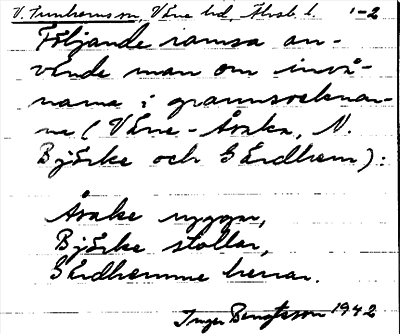 V. Tunhem sn, Väne hd, Älvsb. l. 1-2
Följande ramsa an-
vände man om invå-
narna i grannsocknar-
na (Väne-Åsaka, N.
Björke och Gärdhem):
Åsake uggor,
Björke stollar,
Gärdhemme herrar.
Inger Bengtsson 1942